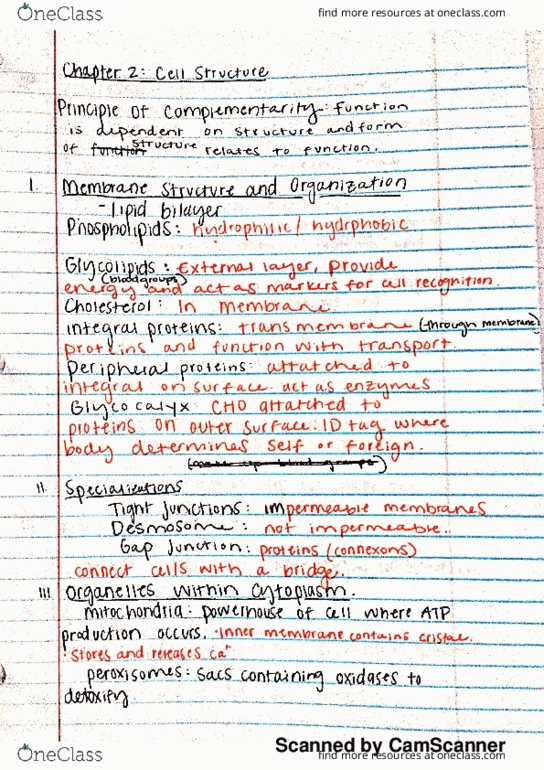 OneClass
find more resources at oneclass.com
Chapter 2: Cell Structure
Principle of complementarity: function
is dependent on structure and form
of function structure relates to function.
I. Membrane Structure and Organization
- lipid bilayer
Phospholipids: Hydrophilic / hydrphobic
Glycolipids: External layer, provide
(bloodgroups)
energy and act as markers for cell recognition.
Cholesterol: In membrane.
integral proteins: transmembrane (through membrane)
proteins and function with transport.
Peripheral proteins: attatched to
integral on surface. act as enzymes
Glycocalyx: CHO attatched to
proteins on outer surface. ID tag where
body determines self or foreign.
II. Specializations
Tight Junctions: impermeable membranes
Desmosome: not impermeable.
Gap Junction: proteins (connexons)
connect cells with a bridge.
III Organelles within Cytoplasm.
mitochondria: powerhouse of cell where ATP
production occurs. · inner membrane contains cristae.
· Stores and releases ca⁺
peroxisomes: sacs containing oxidases to
detoxify
Scanned by CamScanner
OneClass
find more resources at oneclass.com